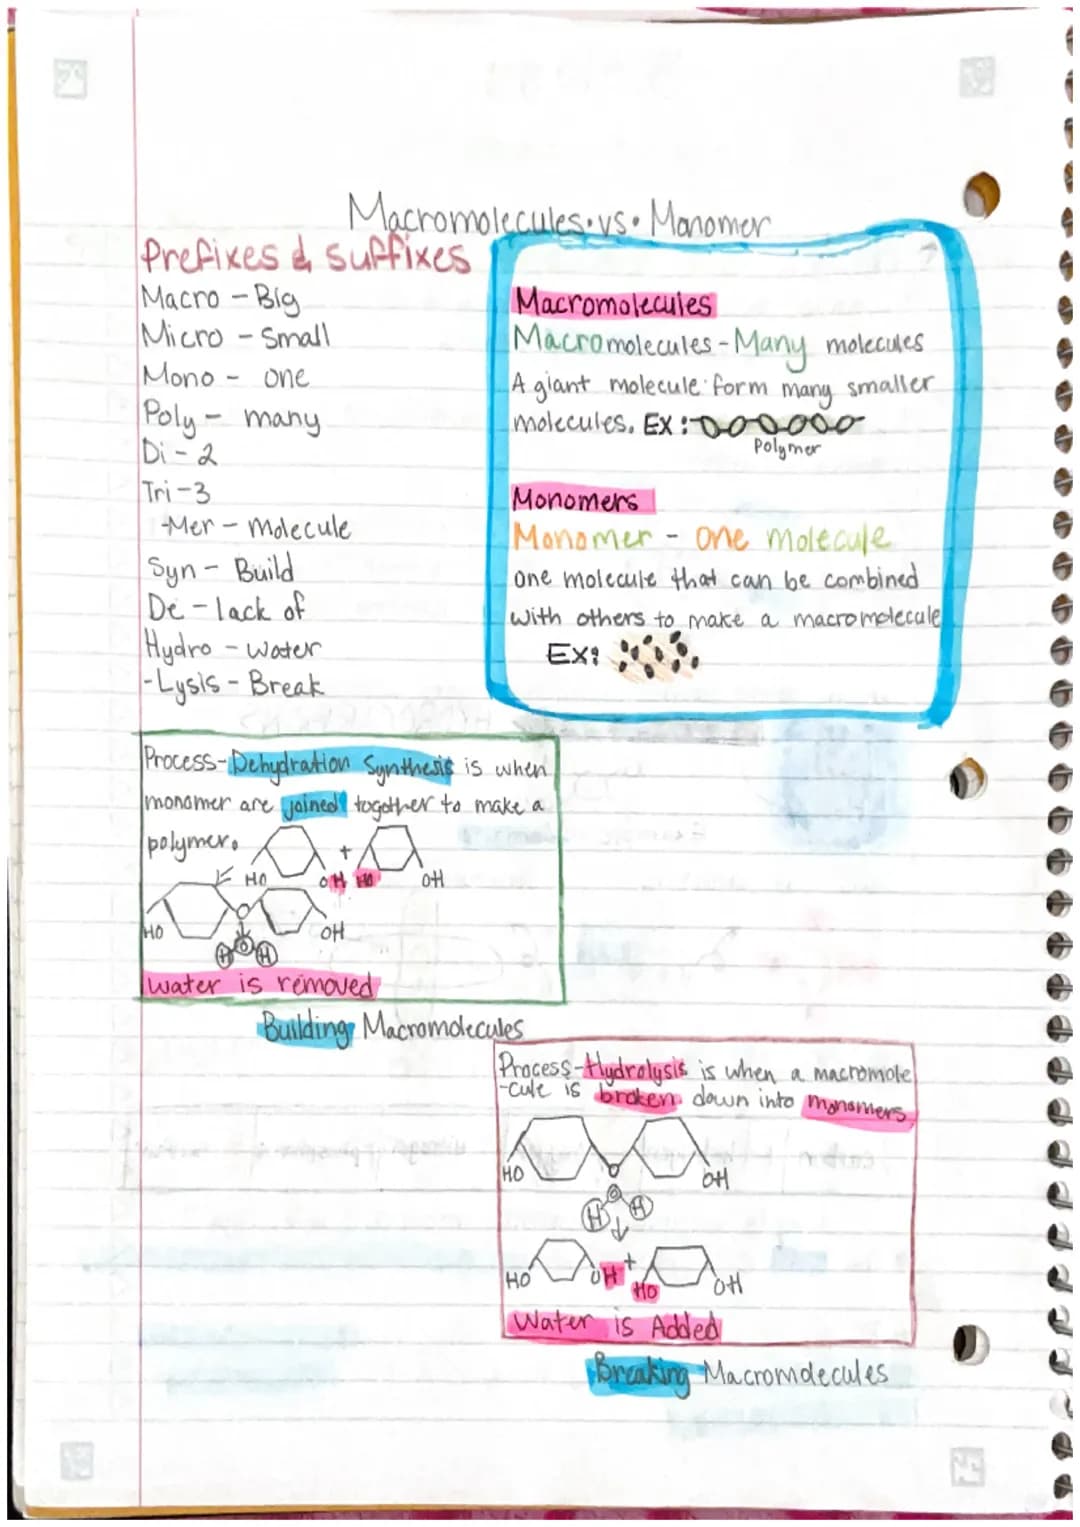 Macromolecules.vs. Monomer
Prefixes & suffixes
Macro - Big
Micro - Small
Mono - one
Poly - many
Di - 2
Tri - 3
-Mer - molecule
Syn - Build
De - lack of
Hydro - water
-Lysis - Break
Macromolecules
Macromolecules - Many molecules
A giant molecule form many smaller
molecules. Ex:
Polymer
Monomers
Monomer - one molecule
one molecule that can be combined
with others to make a macromolecule
Ex:
Process-Dehydration Synthesis is when
monomer are joined together to make a
polymer.
+
HO OH HO OH
HO O OH
H O H
water is removed
Building Macromolecules
Process-Hydrolysis is when a macromole
-cule is broken down into monomers
HO O OH
H O H
+
HO OH HO OH
Water is Added
Breaking Macromolecules